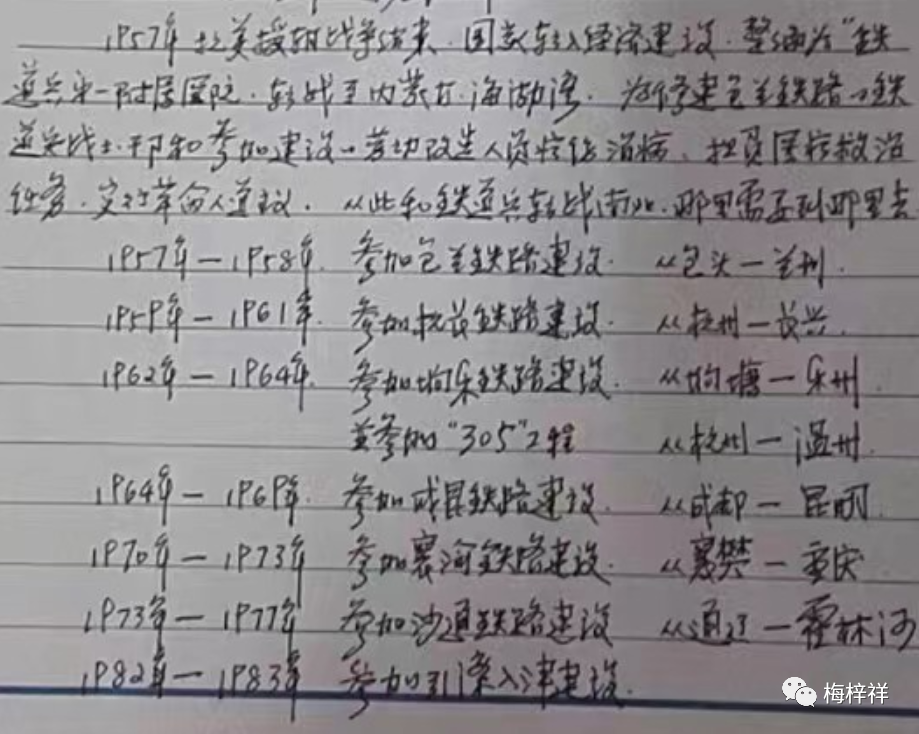 1957年 抗美援朝战争结束.国家转入经济建设.整编为"铁
道兵第一附属医院.转战至内蒙古.海渤湾.为修建包兰铁路的铁
道兵战士.干部和参加建设的劳动改造人员检伤治病、担负医疗救治
任务.实行革命人道主义.从此和铁道兵转战南北.哪里需要到哪里去
1957年—1958年.参加包兰铁路建设.从包头—兰州.
1959年—1961年.参加杭长铁路建设.从杭州—长兴.
1962年—1964年.参加坳乐铁路建设.从坳塘—乐州.
并参加"305"工程 从杭州—温州.
1964年—1969年.参加成昆铁路建设.从成都—昆明.
1970年—1973年 参加襄渝铁路建设.从襄樊—重庆
1973年—1977年 参加沙通铁路建设 从通辽—霍林河
1982年—1983年 参加引滦入津建设.
梅梓祥